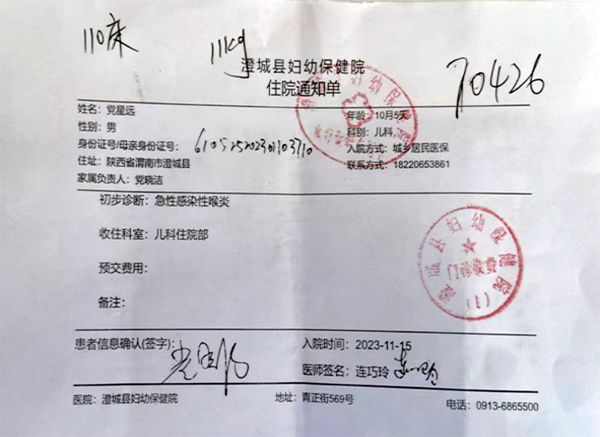 110床
11kg
澄城县妇幼保健院
住院通知单
70426
姓名：党星远
年龄：10月5天
性别：男
科别：儿科
身份证号/母亲身份证号：
入院方式：城乡居民医保
住址：陕西省渭南市澄城县
联系方式：18220653861
家属负责人：党晓洁
初步诊断：急性感染性喉炎
收住科室：儿科住院部
预交费用：
备注：
澄城县妇幼保健院
门诊收费
(1)
患者信息确认(签字)：
入院时间：2023-11-15
医师签名：连巧玲
医院：澄城县妇幼保健院
地址：青正街569号
电话：0913-6865500